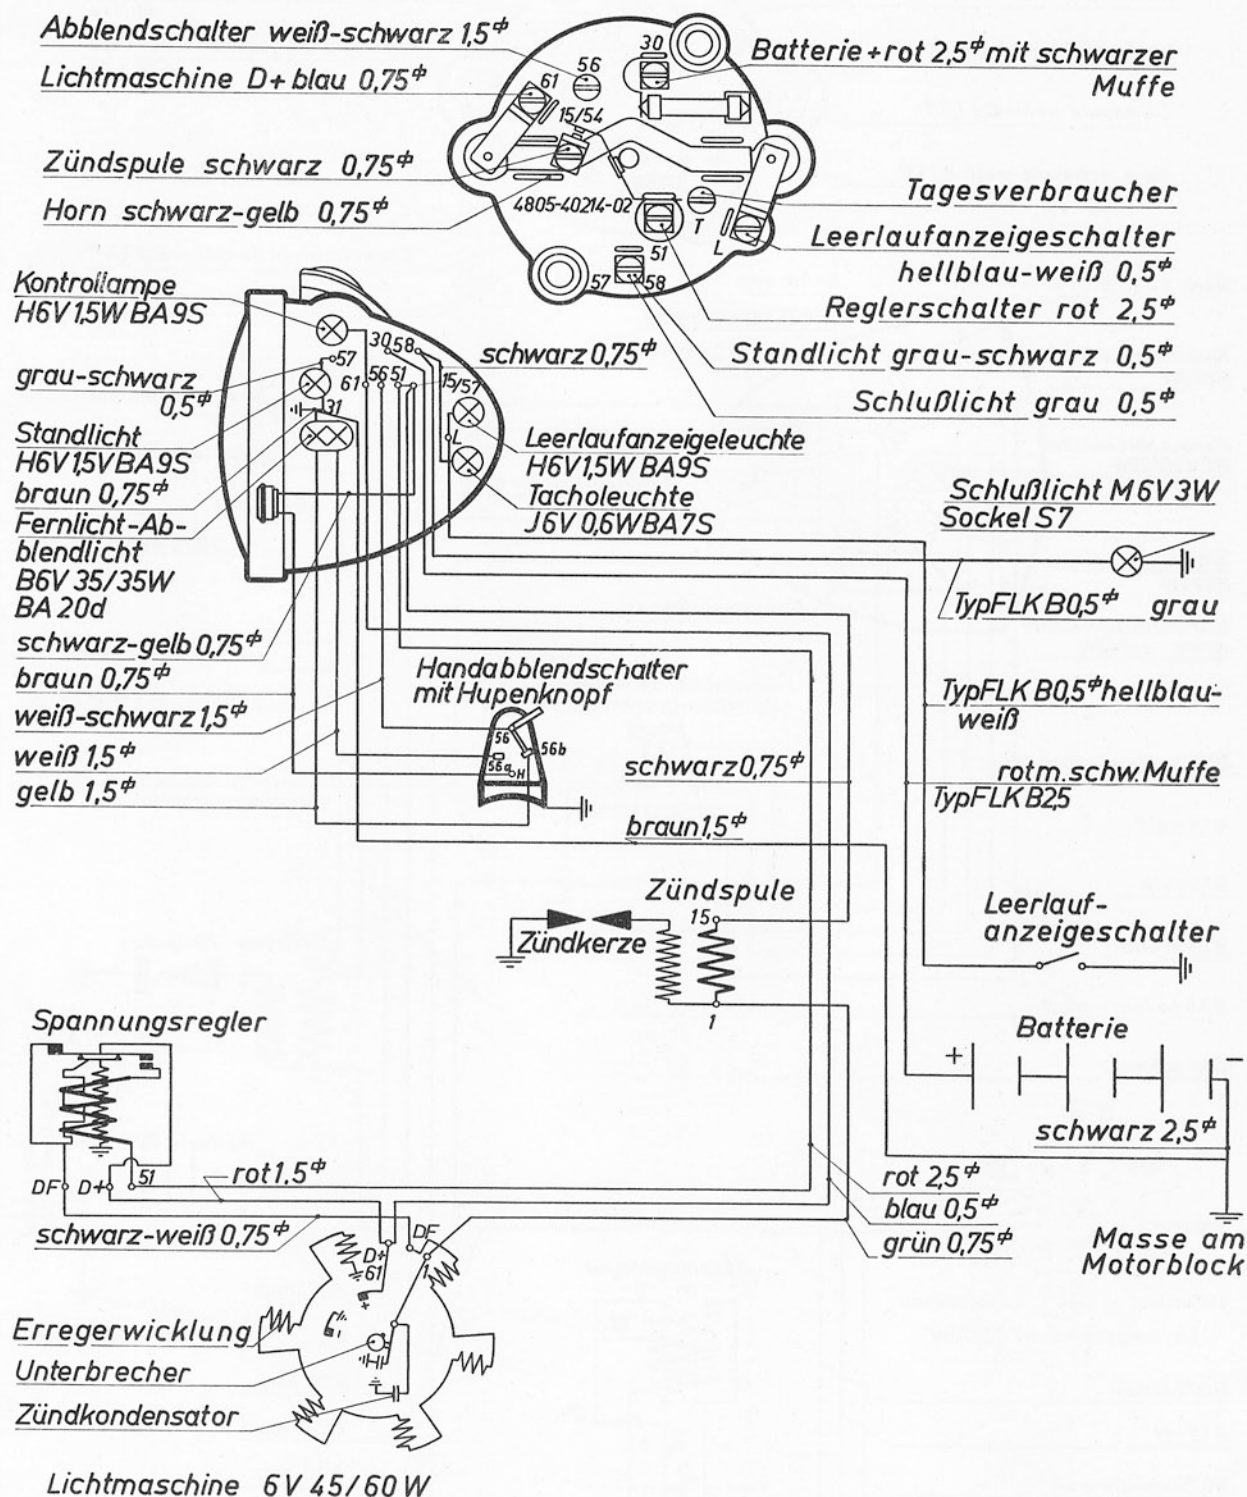 Abblendschalter weiß-schwarz 1,5⌀
Lichtmaschine D+ blau 0,75⌀
Zündspule schwarz 0,75⌀
Horn schwarz-gelb 0,75⌀
61
56
30
15/54
4805-40214-02
T
L
51
57
58
Batterie + rot 2,5⌀ mit schwarzer
Muffe
Tagesverbraucher
Leerlaufanzeigeschalter
hellblau-weiß 0,5⌀
Reglerschalter rot 2,5⌀
Standlicht grau-schwarz 0,5⌀
Schlußlicht grau 0,5⌀
Kontrollampe
H6V1,5W BA9S
grau-schwarz
0,5⌀
Standlicht
H6V1,5V BA9S
braun 0,75⌀
Fernlicht-Ab-
blendlicht
B6V 35/35W
BA 20d
schwarz-gelb 0,75⌀
braun 0,75⌀
weiß-schwarz 1,5⌀
weiß 1,5⌀
gelb 1,5⌀
57
31
30
58
61
56
51
15/57
L
schwarz 0,75⌀
Leerlaufanzeigeleuchte
H6V1,5W BA9S
Tacholeuchte
J6V 0,6W BA7S
Schlußlicht M6V3W
Sockel S7
Typ FLK B0,5⌀ grau
Handabblendschalter
mit Hupenknopf
56
56b
56a
H
Typ FLK B0,5⌀ hellblau-
weiß
schwarz 0,75⌀
rot m. schw. Muffe
Typ FLK B2,5
braun 1,5⌀
Zündspule
15
1
Zündkerze
Leerlauf-
anzeigeschalter
Spannungsregler
Batterie
+
-
schwarz 2,5⌀
DF
D+
51
rot 1,5⌀
rot 2,5⌀
blau 0,5⌀
grün 0,75⌀
schwarz-weiß 0,75⌀
Masse am
Motorblock
D+
61
DF
1
+
-
Erregerwicklung
Unterbrecher
Zündkondensator
Lichtmaschine 6V 45/60 W